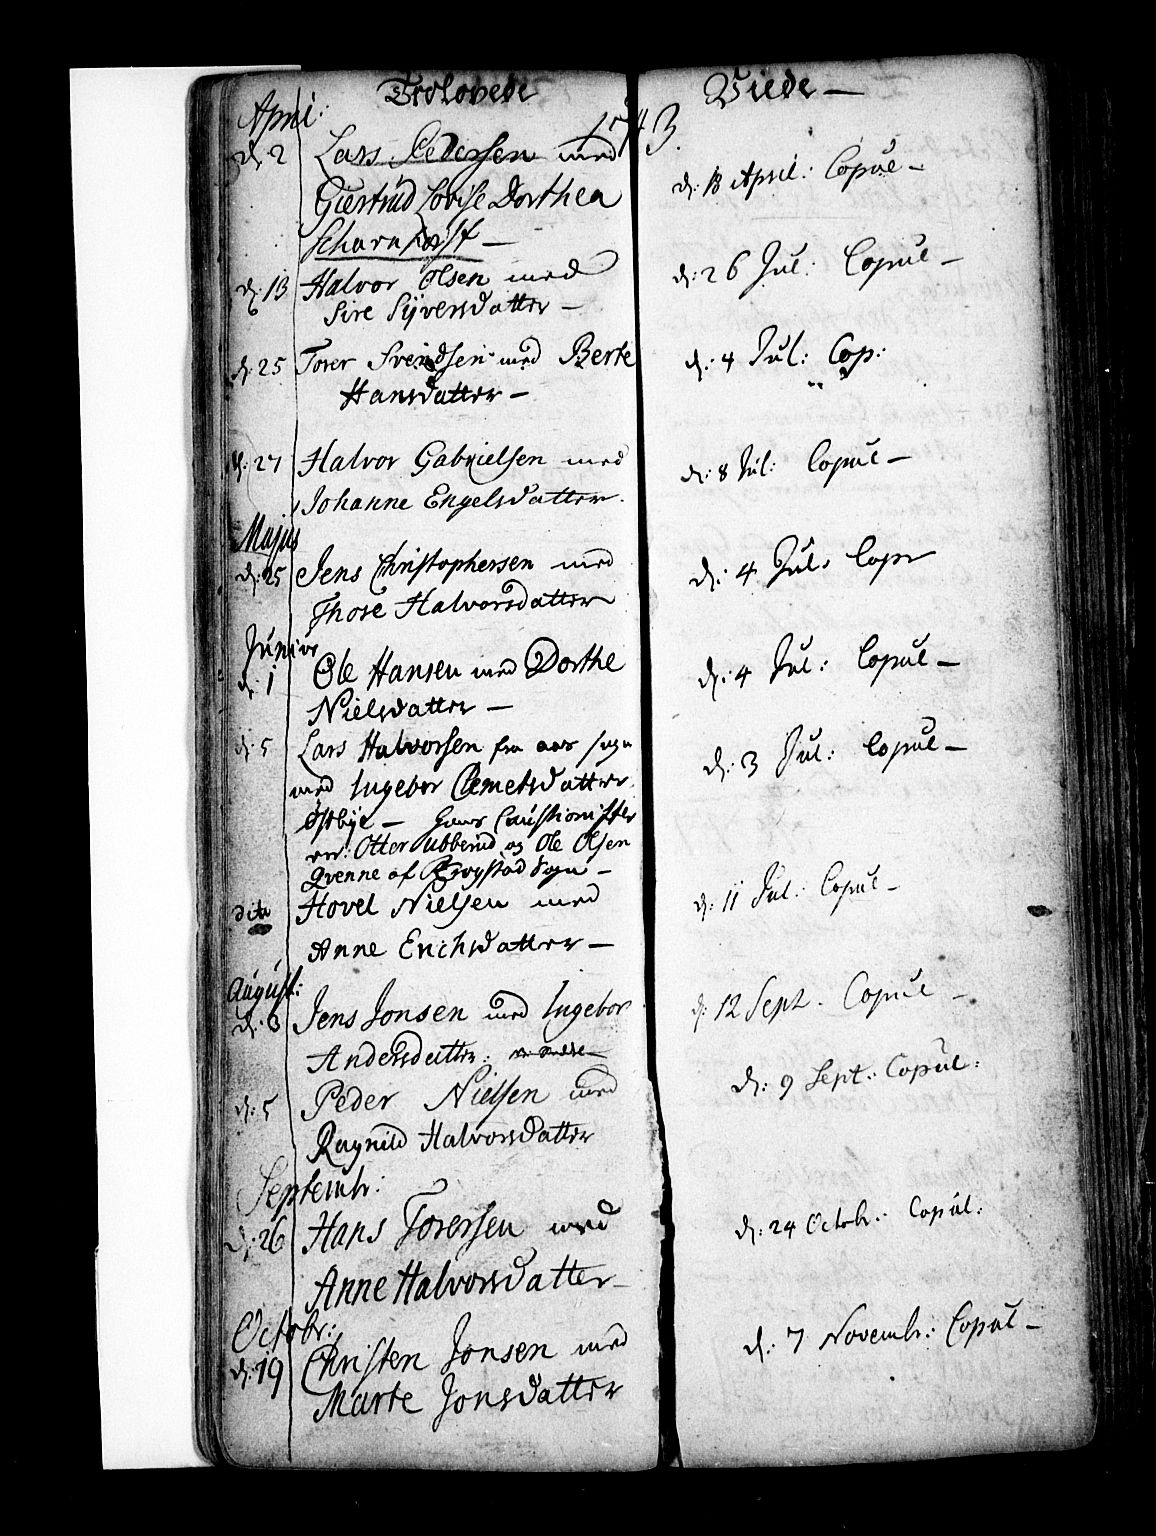 Trolovede
Viede —
1743.
April:
d: 2 Lars Pedersen med
Giertrud Lovise Dorthea
Scharnhorst —
d: 13 April: Copul —
d: 13 Halvor Olsen med
Sire Syversdatter —
d: 26 Jul: Copul —
d: 25 Torer Svendsen med Berte
Hansdatter —
d: 4 Jul: Cop:
d: 27 Halvor Gabrielsen med
Johanne Engelsdatter.
d: 8 Jul: Copul —
Majus
d: 25 Jens Christophersen med
Thore Halvorsdatter
d: 4 Jul: Cop
Junius
d: 1 Ole Hansen med Dorthe
Nielsdatter —
d: 4 Jul: Copul —
d: 5 Lars Halvorsen fra aas sogn
med Ingebor Clemetsdatter
Østbye — hans Cautionister
er: Otter Ubberud og Ole Olsen
Qvenne af sogn —
d: 3 Jul: Copul —
dito Hovel Nielsen med
Anne Erichsdatter —
d: 11 Jul: Copul —
August:
d: 3 Jens Jonsen med Ingebor
Andersdatter:
d: 12 Sept. Copul —
d: 5 Peder Nielsen med
Ragnild Halvorsdatter
d: 9 Sept: Copul:
Septembr:
d: 26 Hans Torersen med
Anne Halvorsdatter —
d: 24 Octobr: Copul:
Octobr:
d: 19 Christen Jonsen med
Marte Jonsdatter
d: 7 Novembr: Copul —